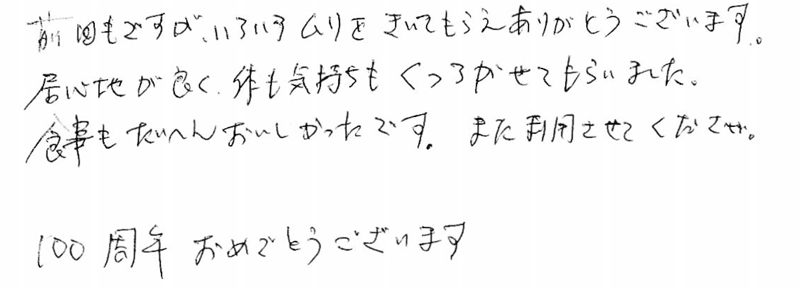 前回もですが、いろいろムリをきいてもらえありがとうございます。
居心地が良く、体も気持ちもくつろがせてもらいました。
食事もたいへんおいしかったです。また利用させてください。
100周年 おめでとうございます